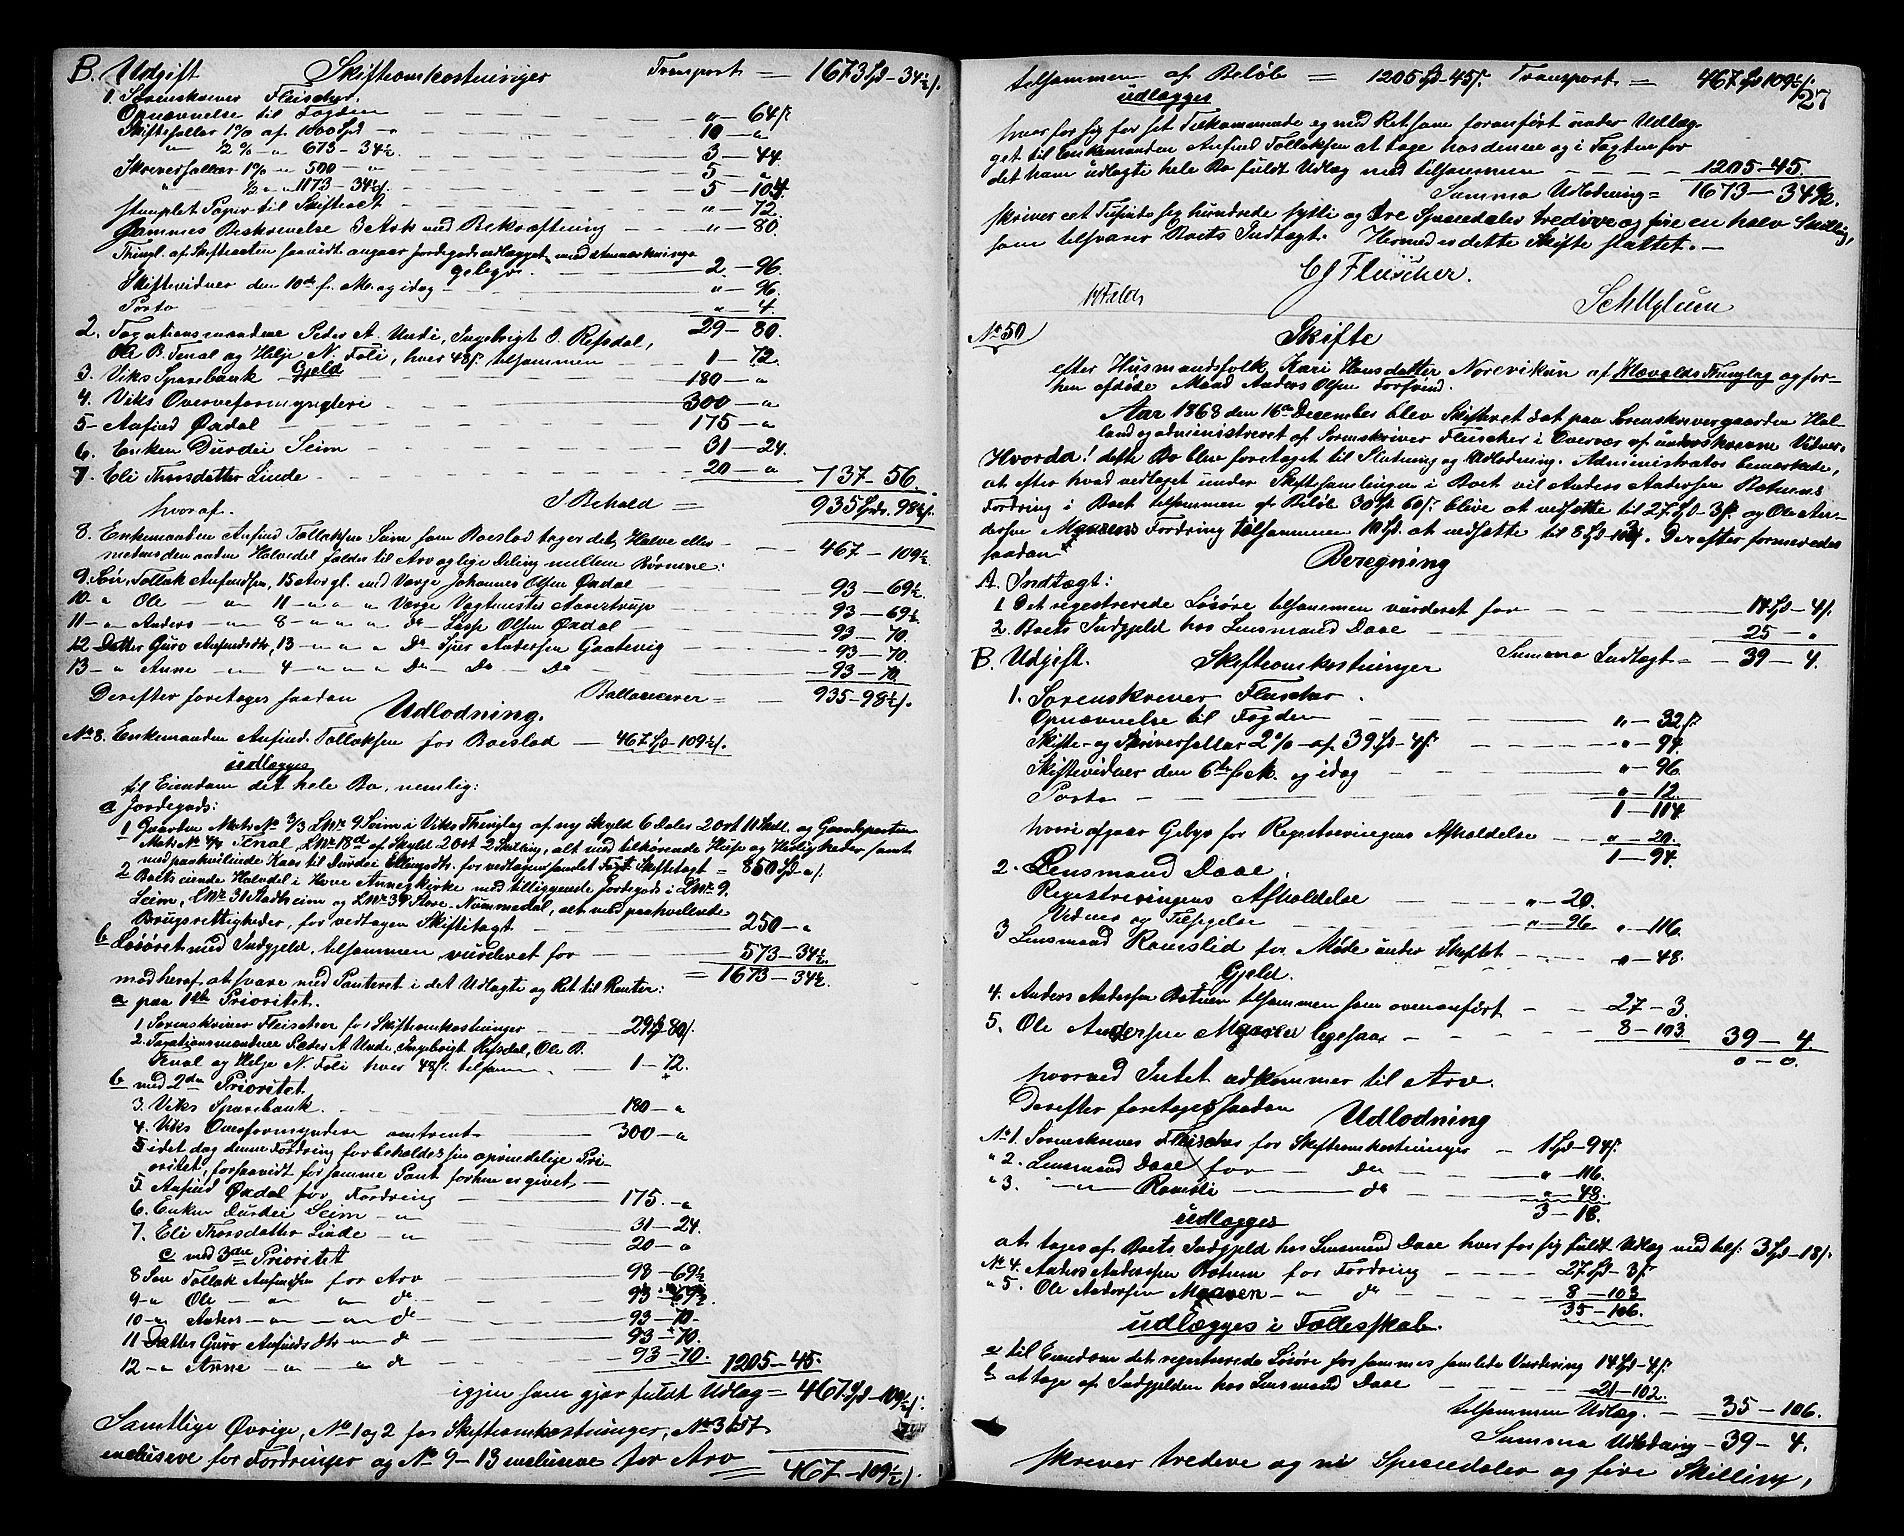 B. Udgift Skifteomkostninger Transport = 1673 Spd – 34½ ſ.
1. Sorenskriver Fleischer.
Opnævnelse til Fogden " – 64 ſ.
Skiftesallar 1% af 1000 Spd – " 10 – "
" ½ % – " 673 – 34½. 3 – 44.
Skriversallar 1% " 500 – " 5 – "
" ½ " " 1173 – 34½ ſ. 5 – 104.
stemplet Papir til Skifteact " – 72.
Sammes Beskrivelse 3 Ark med Bekræftning " – 80.
Thingl. af Skifteacten saavidt angaar Jordegodsudlægget med
gebyr 2 – 96.
Skiftevidner den 10de f. M. og idag " – 96.
Porto " – 4.
29 – 80.
2. Taxationsmændene Peder A. Undi, Ingebrigt O. Refsdal,
Ole B. Tenal og Helje N. Foli, hver 48 ſ. tilsammen 1 – 72.
Gjeld
3. Viks Sparebank 180 – "
4. Viks Overformynderi 300 – "
5 – Anfind Øxdal 175 – "
6. Enken Durdei Seim 31 – 24.
7. Eli Thorsdatter Linde 20 – " 737 – 56.
I Behold = 935 Spd. 98½ ſ.
hvoraf.
8. Enkemanden Anfind Tollaksen Seim som Boeslod tager det Halve eller 467 – 109½
medens den anden Halvedel falder til Arv og lige Deling mellem Børnene:
9. Søn Tollak Anfindsen, 15 Aar gl. med Værge Johannes Olsen Øxdal 93 – 69½.
10 – " Ole – " 11 – " " " Værge Vagtmester Aasertrup 93 – 69½.
11 – " Anders – " 8 – " " " do Lasse Olsen Øxdal 93 – 70.
12 Datter Guro Anfindsdtr, 13 – " " " Do Sjur Andersen Gaatevig 93 – 70.
13 – " Anne " 4 – " " " Do Do Do 93 – 70.
Derefter foretoges saadan Ballancerer = 935 – 98½ ſ.
Udlodning.
No 8. Enkemanden Anfind Tollaksen for Boeslod – 467 Spd – 109½ ſ.
udlægges
til Eiendom det hele Bo, nemlig:
a Jordegods:
1 Gaarden Matr No 3/3 LNr 9 Seim i Viks Thinglag af ny Skyld 6 Daler 2 Ort 11 Skill. og Gaardsparten
Matr No Tenal, LNr 18 a af Skyld 2 Ort 2 Skilling, alt med tilhørende Huse og Herligheder samt
med paahvilende Kaar til Durdei Ellingsdtr, for vedtagen samlet Skiftetagt = 850 Spd – " ſ.
2 Boets eiende Halvdel i Hove Annexkirke med tilliggende Jordegods i LNr 9
Seim, LNr 31 Stadheim og LNr 39 Store-Nummedal, alt med paahvilende
Brugsrettigheder, for vedtagen Skiftetagt 250 – "
b Løsøret med Indgjeld, tilsammen vurderet for 573 – 34½.
= 1673 – 34½
mod heraf at svare med Panteret i det Udlagte og Ret til Renter:
a paa 1ste Prioritet.
1 Sorenskriver Fleischer for Skifteomkostninger 29 Spd – 80 ſ.
2. Taxationsmændene Peder A. Unde, Ingebrigt Refsdal, Ole B.
Tenal og Helje N. Foli hver 48 ſ. tilsam. 1 – 72.
b med 2den Prioritet
3. Viks Sparebank. 180 – "
4. Viks Overformynderi omtrent 300 – "
i det dog denne Fordring forbeholdes sin oprindelige Pri–
oritet, forsaavidt for samme Pant forhen er givet, –
5. Anfind Øxdal for Fordring 175. – "
6. Enken Durdei Seim – " 31 – 24.
7. Eli Thorsdatter Linde – " 20 – "
c med 3die Prioritet
8 Søn Tollak Anfindsen for Arv 93 – 69½
9 – " Ole – " " do 93 – 69½.
10 – " Anders – " – " do 93 – 70.
11 Datter Guro Anfindsdtr – " do 93 – 70.
12 – " Anne – " – " do 93 – 70. 1205 – 45.
igjen som gjør fuldt Udlæg = 467 Spd – 109½ ſ.
Samtlige Øvrige, No 1 og 2 for Skifteomkostninger, No 3 til 7
inclusive for Fordringer og No 9 – 13 inclusive for Arv
467 – 109½ ſ.
tilsammen af Beløb = 1205 Spd – 45 ſ. Transport = 467 Spd 109½ ſ.
27
udlægges
hver for sig for sit Tilkommende og med Ret som foranført under Udlæg–
get til Enkemanden Anfind Tollaksen at tage hos denne og i Fogten for
det ham udlagte hele Bo fuldt Udlæg med tilsammen 1205 – 45.
Summa Udlodning = 1673 – 34½.
skriver eet Tusinde sex hundrede sytti og tre Speciedaler tredive og fire en halv Skilling,
som tilsvarer Boets Indtægt. Hermed er dette Skifte sluttet. –
CJ Fleischer.
No 50
Skifte
efter Husmandsfolk, Kari Hansdatter Norevikün af Klævolds Thinglag og for–
hen afdøde Mand Anders Olsen
Aar 1868 den 16de December blev Skifteret sat paa Sorenskrivergaarden Hol–
land og administreret af Sorenskriver Fleischer i Overvær af underskrevne Vidner.
Hvorda! dette Bo blev foretaget til Slutning og Udlodning. Administrator bemærkede,
at efter hvad vedtaget under Skiftesamlingen i Boet vil Anders Andersen Botnens
Fordring i Boet tilsammen af Beløb 30 Spd 60 ſ. blive at nedsætte til 27 Spd – 3 ſ. og Ole An–
dersen Maarens Fordring tilsammen 10 Spd. at nedsætte til 8 Spd – 103 ſ. Derefter formeredes
saadan
Beregning
A. Indtægt:
1. Det registrerede Løsøre, tilsammen vurderet for 14 Spd – 4 ſ.
2. Boets Indgjeld hos Lensmand Daae 25 – "
Summa Indtægt = 39 – 4.
B. Udgift. Skifteomkostninger
1. Sorenskriver Fleischer.
Opnævnelse til Fogden " – 32 ſ.
Skifte– og Skriversallar 2% – af 39 Spd – 4 ſ. " – 94.
Skiftevidner den 6te f. M. og idag " – 96.
Porto " – 12.
1 – 114.
hvori afgaar Gebyr for Registreringens Afholdelse " – 20.
1 – 94.
2. Lensmand Daae.
Registreringens Afholdelse " – 20.
Vidner og Tilsigelse " – 96 " – 116.
3 Lensmand Romslid for Møde under Skiftet " – 48.
Gjeld.
4. Anders Andersen Botnen tilsammen som ovenanført 27 – 3.
5. Ole Andersen Maaren ligesaa 8 – 103. 39 – 4.
0 – 0.
hvorved Intet udkommer til Arv.
Derefter foretoges saadan Udlodning
No 1. Sorenskriver Fleischer for Skifteomkostninger – 1 Spd – 94 ſ.
" 2. Lensmand Daae for – Do " – 116.
" 3. – " – Romsli – do " – 48.
3 – 18.
udlægges
at tages af Boets Indgjeld hos Lensmand Daae hver for sig fuldt Udlæg med tils: 3 Spd – 18 ſ.
No 4. Anders Andersen Botnen for Fordring 27 Spd – 3 ſ.
" 5. Ole Andersen Maaren – " do 8 – 103
35 – 106.
udlægges i Fællesskab.
a til Eiendom det registrerede Løsøre for sammes samlede Vurdering 14 Spd – 4 ſ.
b at tage af Indgjelden hos Lensmand Daae 21 – 102.
tilsammen Udlæg. – 35 – 106.
Summa Udlodning – 39 – 4.
skriver tredive og ni Speciedaler og fire Skilling,